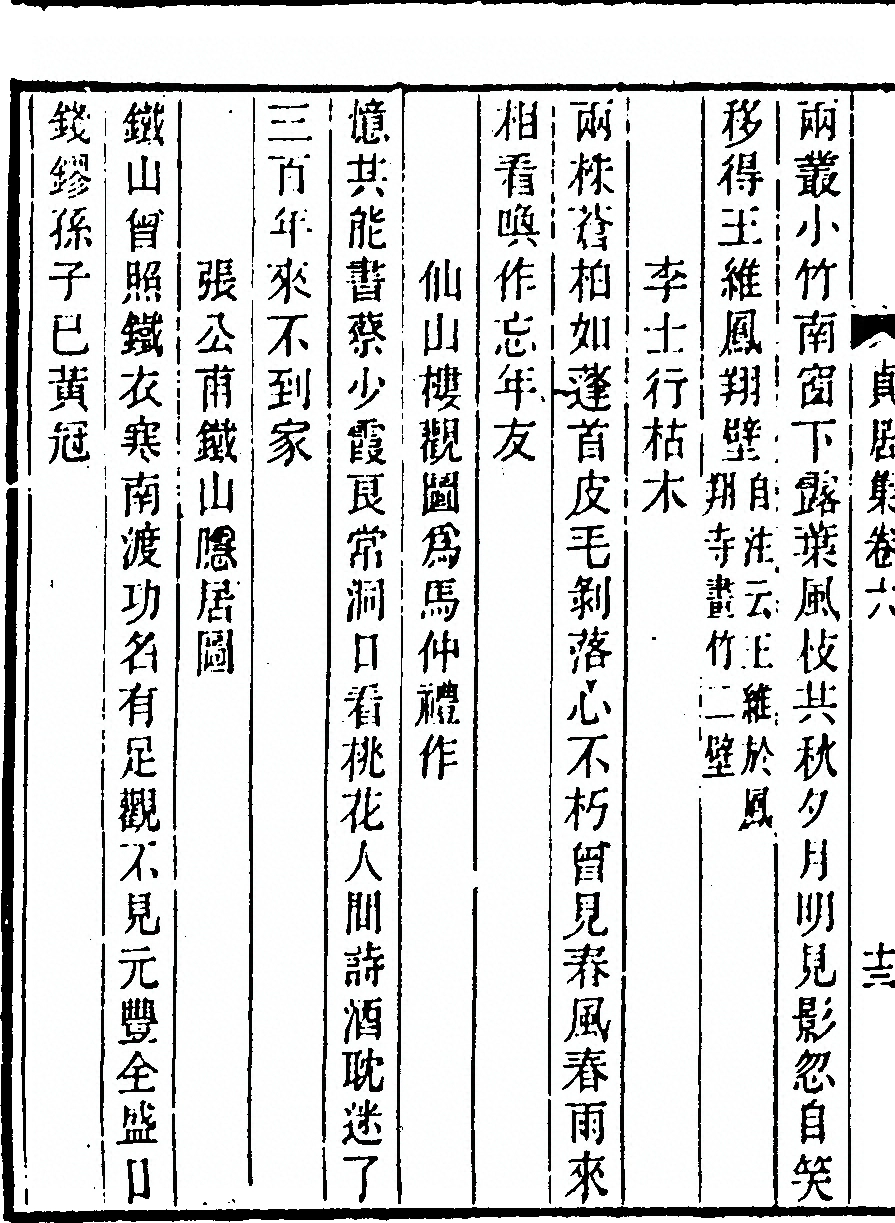 貞居集卷六
十三
兩叢小竹南窗下露葉風枝共秋夕月明見影忽自笑
移得王維鳳翔壁自注云王維於鳳
翔寺畫竹二壁
李士行枯木
兩株蒼柏如蓬首皮毛剝落心不朽曾見春風春雨來
相看喚作忘年友
仙山樓觀圖爲馬仲禮作
憶共能書蔡少霞良常洞口看桃花人間詩酒耽迷了
三百年來不到家
張公甫鐵山隱居圖
鐵山曾照鐵衣寒南渡功名有足觀不見元豐全盛日
錢鏐孫子已黃冠